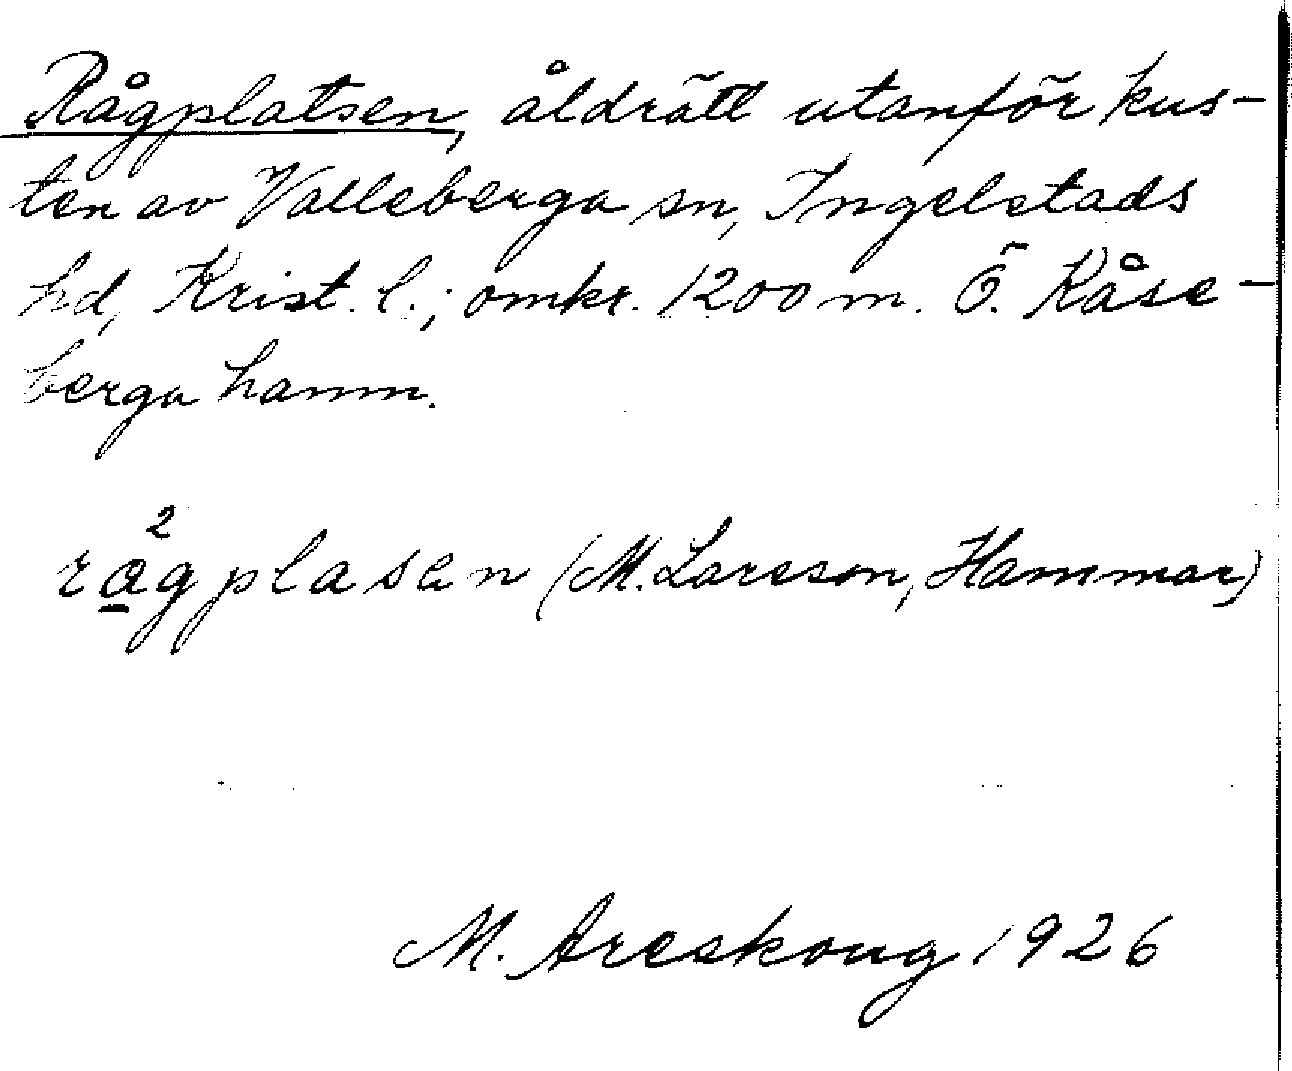 Rågplatsen, åldrätt utanför kus-
ten av Valleberga sn, Ingelstads
hd, Krist. l.; omkr. 1200 m. Ö. Kåse-
berga hamn.
2
rågplasen (M. Larsson, Hammar)
M. Areskoug 1926